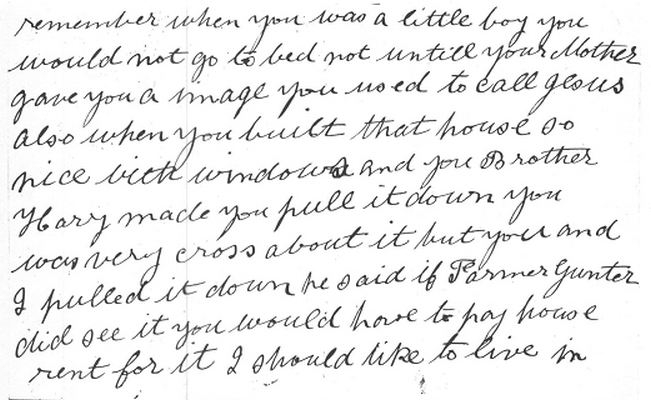 remember when you was a little boy you
would not go to bed not untill your Mother
gave you a image you used to call Jesus
also when you built that house so
nice with windows and you Brother
Hary made you pull it down you
was very cross about it but you and
I pulled it down he said if Parmer Gunter
did see it you would have to pay house
rent for it I should like to live in